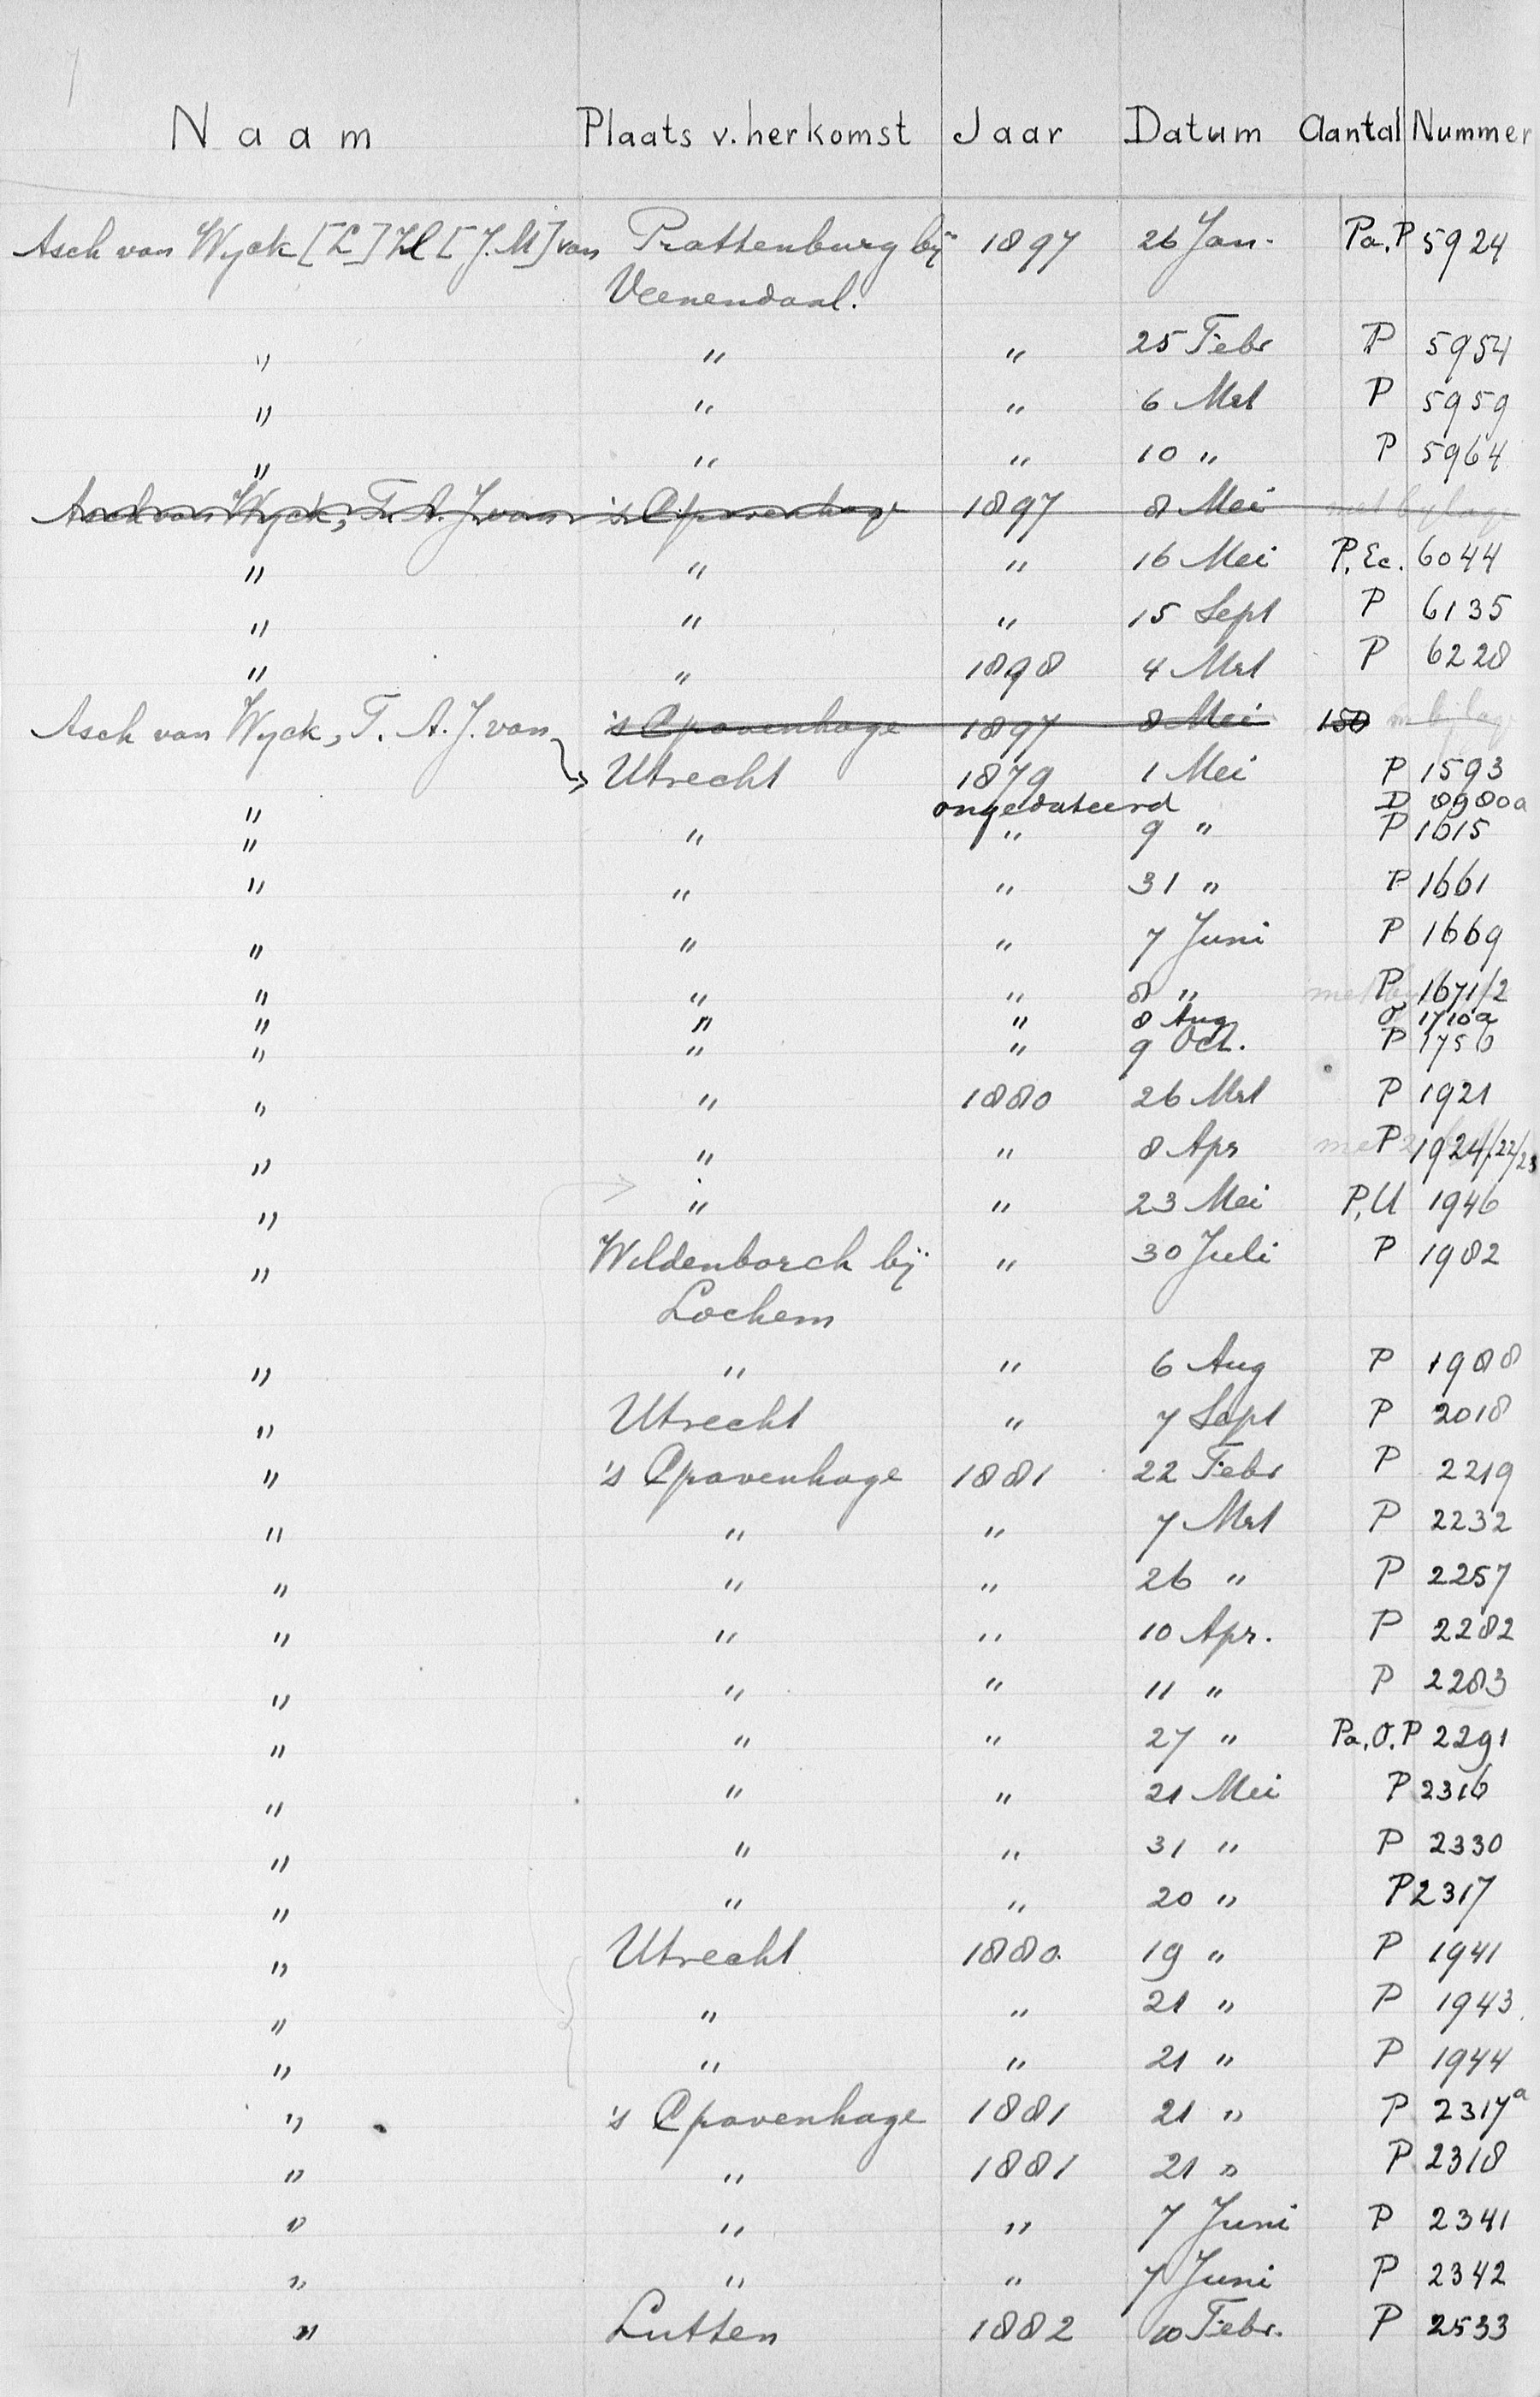 Naam Plaats v. herkomst Jaar Datum Aantal Nummer
Asch van Wyck [L] Hl [J. M] van Prattenburg bij 1897 26 Jan. Pa. P 5924
Veenendaal.
" " " 25 Febr P 5954
" " " 6 Mrt P 5959
" " " 10 " P 5964
Asch van Wyck, T. A. J. van 's Gravenhage 1897 8 Mei met bylage
" " " 16 Mei P. Ec. 6044
" " " 15 Sept P 6135
" " 1898 4 Mrt P 6228
Asch van Wyck, T. A. J. van 's Gravenhage 1897 8 Mei 150 m bijlag
Utrecht 1879 1 Mei P 1593
" ongedateerd D 8980a
" " " 9 " P 1615
" " " 31 " P 1661
" " " 7 Juni P 1669
" " " 8 " P 1671/2
" " " 8 Aug O 1710a
" " " 9 Oct. P 1756
" " 1880 26 Mrt P 1921
" " " 8 Apr P 1924/22/23
" " " 23 Mei P, U 1946
" Wildenborch bij " 30 Juli P 1982
Lochem
" " " 6 Aug P 1988
" Utrecht " 7 Sept P 2018
" 's Gravenhage 1881 22 Febr P 2219
" " " 7 Mrt P 2232
" " " 26 " P 2257
" " " 10 Apr. P 2282
" " " 11 " P 2283
" " " 27 " Pa, O. P 2291
" " " 21 Mei P 2316
" " " 31 " P 2330
" " " 20 " P 2317
" Utrecht 1880. 19 " P 1941
" " " 21 " P 1943
" " " 21 " P 1944
" 's Gravenhage 1881 21 " P 2317a
" " 1881 21 " P 2318
" " " 7 Juni P 2341
" " " 7 Juni P 2342
" Lutten 1882 10 Febr. P 2533